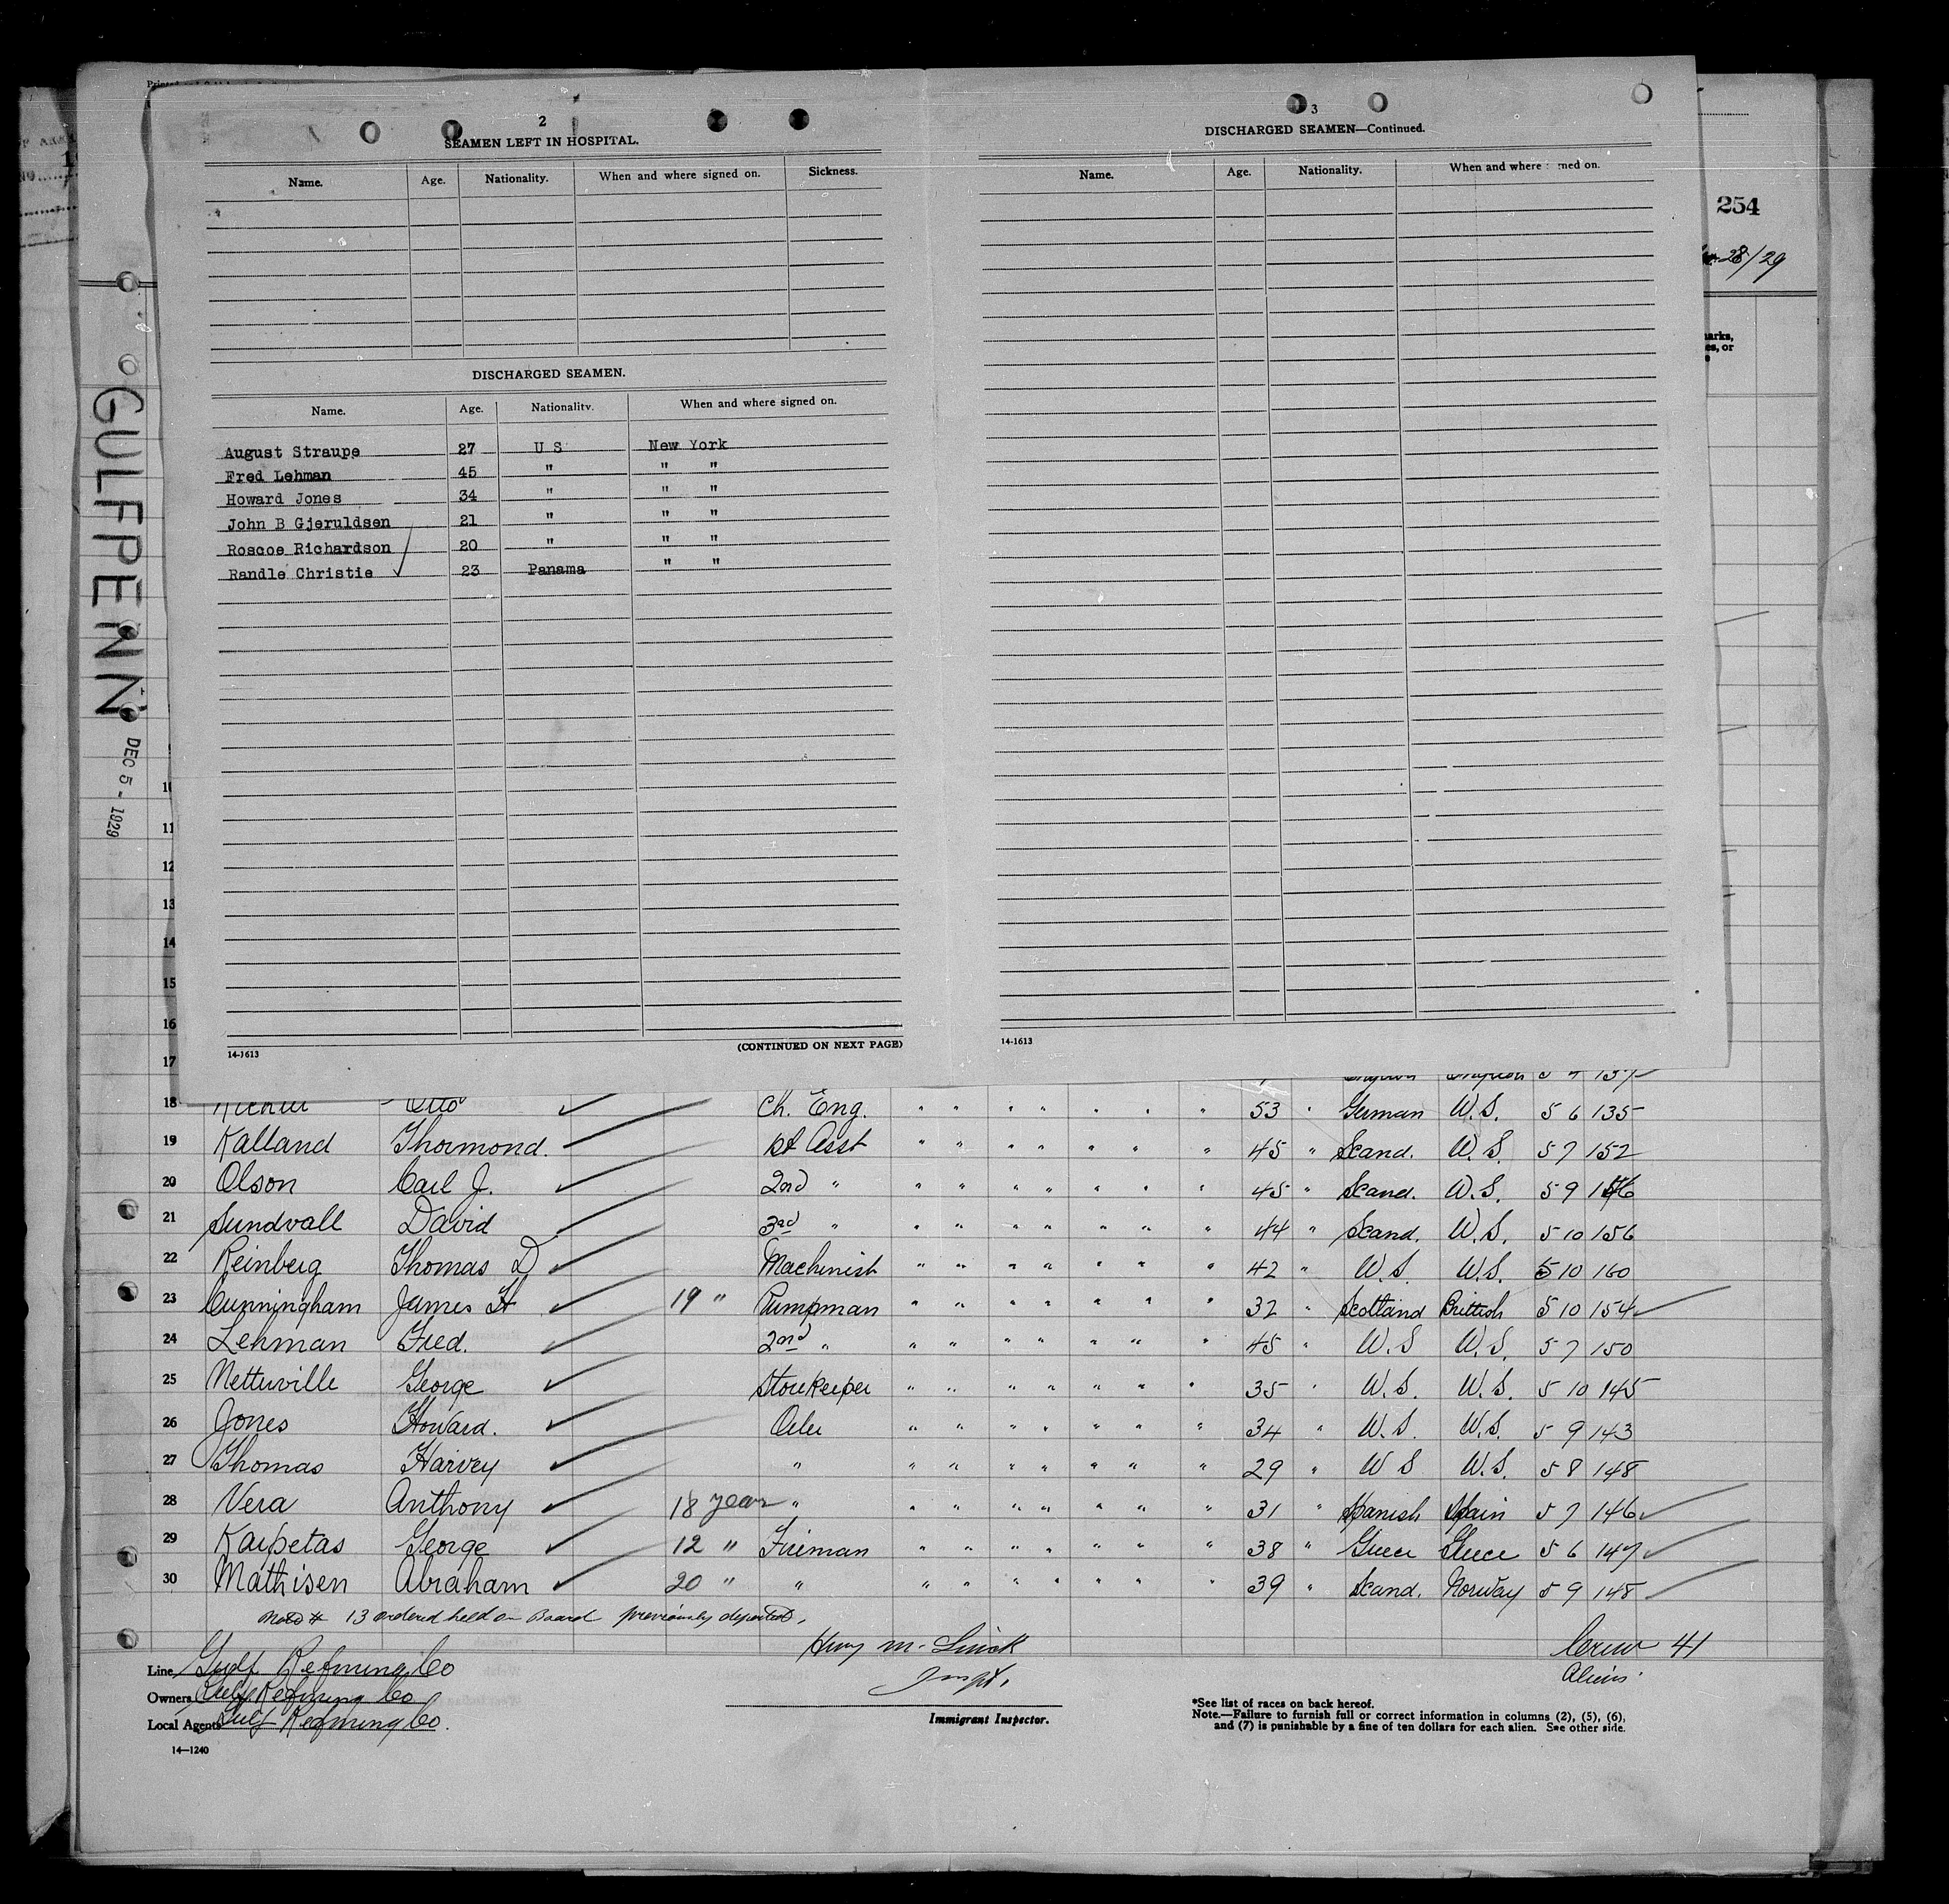 2
SEAMEN LEFT IN HOSPITAL.
Name. Age. Nationality. When and where signed on. Sickness.
DISCHARGED SEAMEN.
Name. Age. Nationality. When and where signed on.
August Straupe 27 U S New York
Fred Lehman 45 " " "
Howard Jones 34 " " "
John B Gjeruldsen 21 " " "
Roscoe Richardson 20 " " "
Randle Christie 23 Panama " "
14-1613
(CONTINUED ON NEXT PAGE)
3
DISCHARGED SEAMEN—Continued.
Name. Age. Nationality. When and where med on.
14-1613
254
28/29
arks,
es, or
GULFPENN
DEC 5 - 1929
10
11
12
13
14
15
16
17
18 Otto Ch. Eng. " " " " " " " 53 " German U.S. 5 6 135
19 Kalland Thormond. 1st Asst " " " " " " " 45 " Scand. U.S. 5 7 152
20 Olson Carl J. 2nd " " " " " " " " 45 " Scand. U.S. 5 9
21 Sundvall David 3rd " " " " " " " " 44 " Scand. U.S. 5 10 156
22 Reinberg Thomas D Machinist " " " " " " " 42 " U.S. U.S. 5 10 160
23 Cunningham James H 19 " Pumpman " " " " " " " 32 " Scotland Brittish 5 10 154
24 Lehman Fred. 2nd " " " " " " " " 45 " U.S U.S. 5 7 150
25 Nettuville George Storekeeper " " " " " " " 35 " U.S. U.S. 5 10 145
26 Jones Howard. Oiler " " " " " " " 34 " U.S. U.S. 5 9 143
27 Thomas Harvey " " " " " " " " 29 " U S U.S. 5 8 148
28 Vera Anthony 18 year " " " " " " " " 31 " Spanish Spain 5 7 146
29 Karpetas George 12 " Fireman " " " " " " " 38 " Greece Greece 5 6 147
30 Mathisen Abraham 20 " " " " " " " " " 39 " Scand. Norway 5 9 148
Note # 13 ordered held on Board previously deported.
Line Gulf Refining Co
Owners Gulf Refining Co
Local Agents Gulf Refining Co.
14—1240
Inspt.
Immigrant Inspector.
Crew 41
Aliens
*See list of races on back hereof.
Note.—Failure to furnish full or correct information in columns (2), (5), (6),
and (7) is punishable by a fine of ten dollars for each alien. See other side.